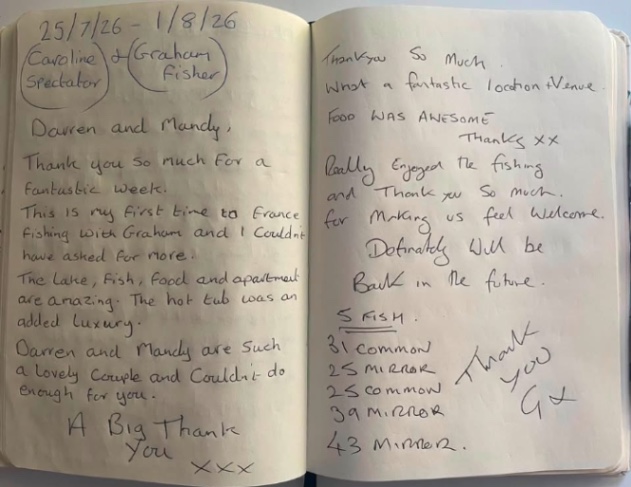 25/7/26 - 1/8/26
Caroline & Graham
Spectator Fisher
Darren and Mandy,
Thank you so much for a
fantastic week.
This is my first time to France
fishing with Graham and I Couldn't
have asked for more.
The Lake, Fish, food and apartment
are amazing. The hot tub was an
added Luxury.
Darren and Mandy are such
a lovely Couple and Couldn't do
enough for you.
A Big Thank
You
xxx
Thankyou So Much.
What a fantastic location + Venue.
FOOD WAS AWESOME
Thanks xx
Really Enjoyed the fishing
and Thank you So much.
for Making us feel Welcome.
Definately Will be
Back in the future.
5 FISH.
31 COMMON
25 MIRROR
25 COMMON
39 MIRROR
43 MIRROR.
Thank
you
Gx